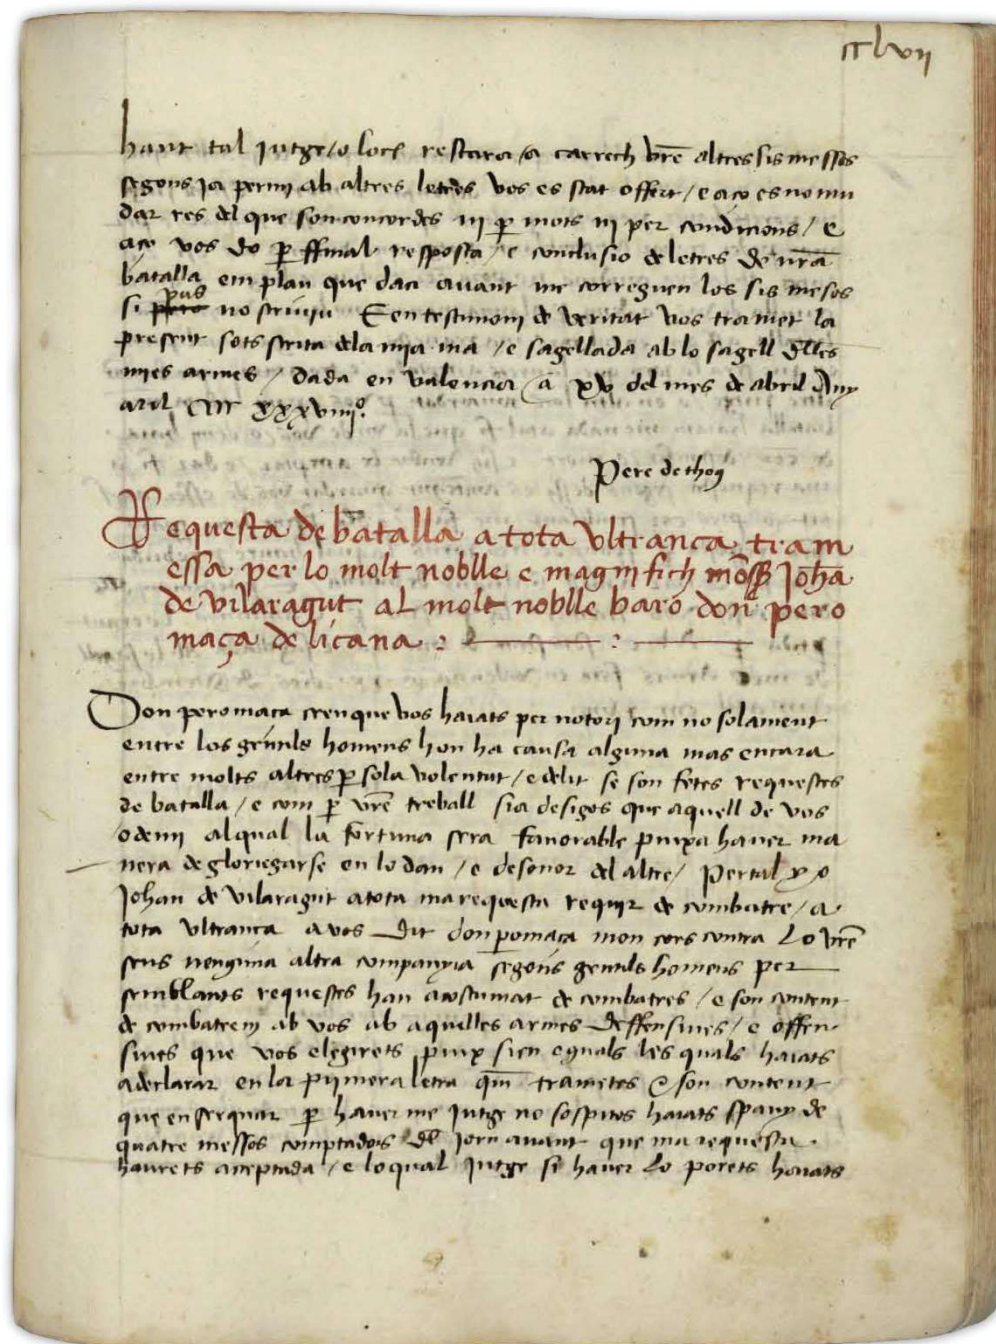 ccl vii
hant tal jutge / o loch restara a carrech vr̄e altres sis messos
segons ja per mi ab altres letres vos es stat offert / e aço es no mu
dar res del que som concordes ni p̱ mots ni per condicions / e
aço vos do p̱ ffinal resposta / e conclusio de letres de nr̄a
batalla em plau que daci avant me correguen los sis mesos
si pus no scriviu E en testimoni de veritat vos tramet la
present sots scrita dela mia ma / e sagellada ab lo sagell dels
mies armes / dada en valencia a xv del mes de abril Any
xxxviiijº.
Pere de
Requesta de batalla a tota ultranca tram
essa per lo molt noblle e magnifich mōss Johā
de vilaragut al molt noblle baro don pero
maça de licana : :
Don pero maça creu que vos haiats per notori com no solament
entre los gentils homens hon ha causa alguna mas encara
entre molts altres p̱ sola voluntat / e delit se son fetes requestes
de batalla / e com p̱ vr̄e treball sia desigos que aquell de vos
o de mi al qual la fortuna sera favorable puixa haver ma
nera de gloriegarse en lo dan / e desonor del altre / Per tal yo
Johan de vilaragut a tota ma requesta requir de combatre / a
tota ultranca a vos dit don p̱o maça mon cors contra lo vr̄e
sens neguna altra companyia segons gentils homens per
semblants requestes han acostumat de combatres / e son content
de combatrem ab vos ab aquelles armes deffensives / e offen
sives que vos elegirets puix sien eguals les quals haiats
a declarar en la primera letra qm̄ trametes e son content
que en serquar p̱ haver me jutge no sospitos haiats spay de
quatre messos comptados del jorn avant que ma requesta
haurets acceptada / e lo qual jutge si haver lo porets haiats